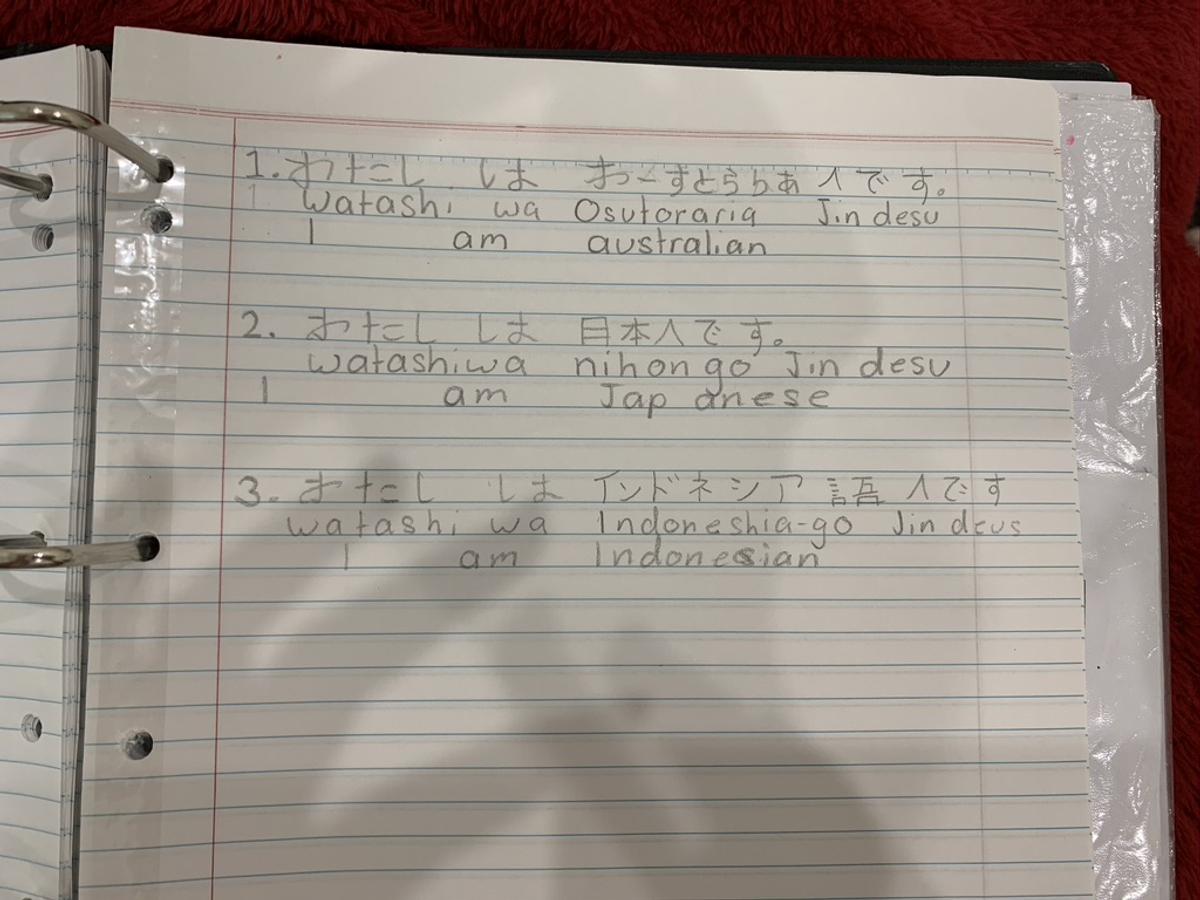 1. わたし は おーすとらりあ人です。
watashi wa Osutoraria Jin desu
I am australian
2. わたし は 日本人です。
watashi wa nihon go Jin desu
I am Japanese
3. わたし は インドネシア語人です
watashi wa Indoneshia-go Jin deus
I am Indonesian